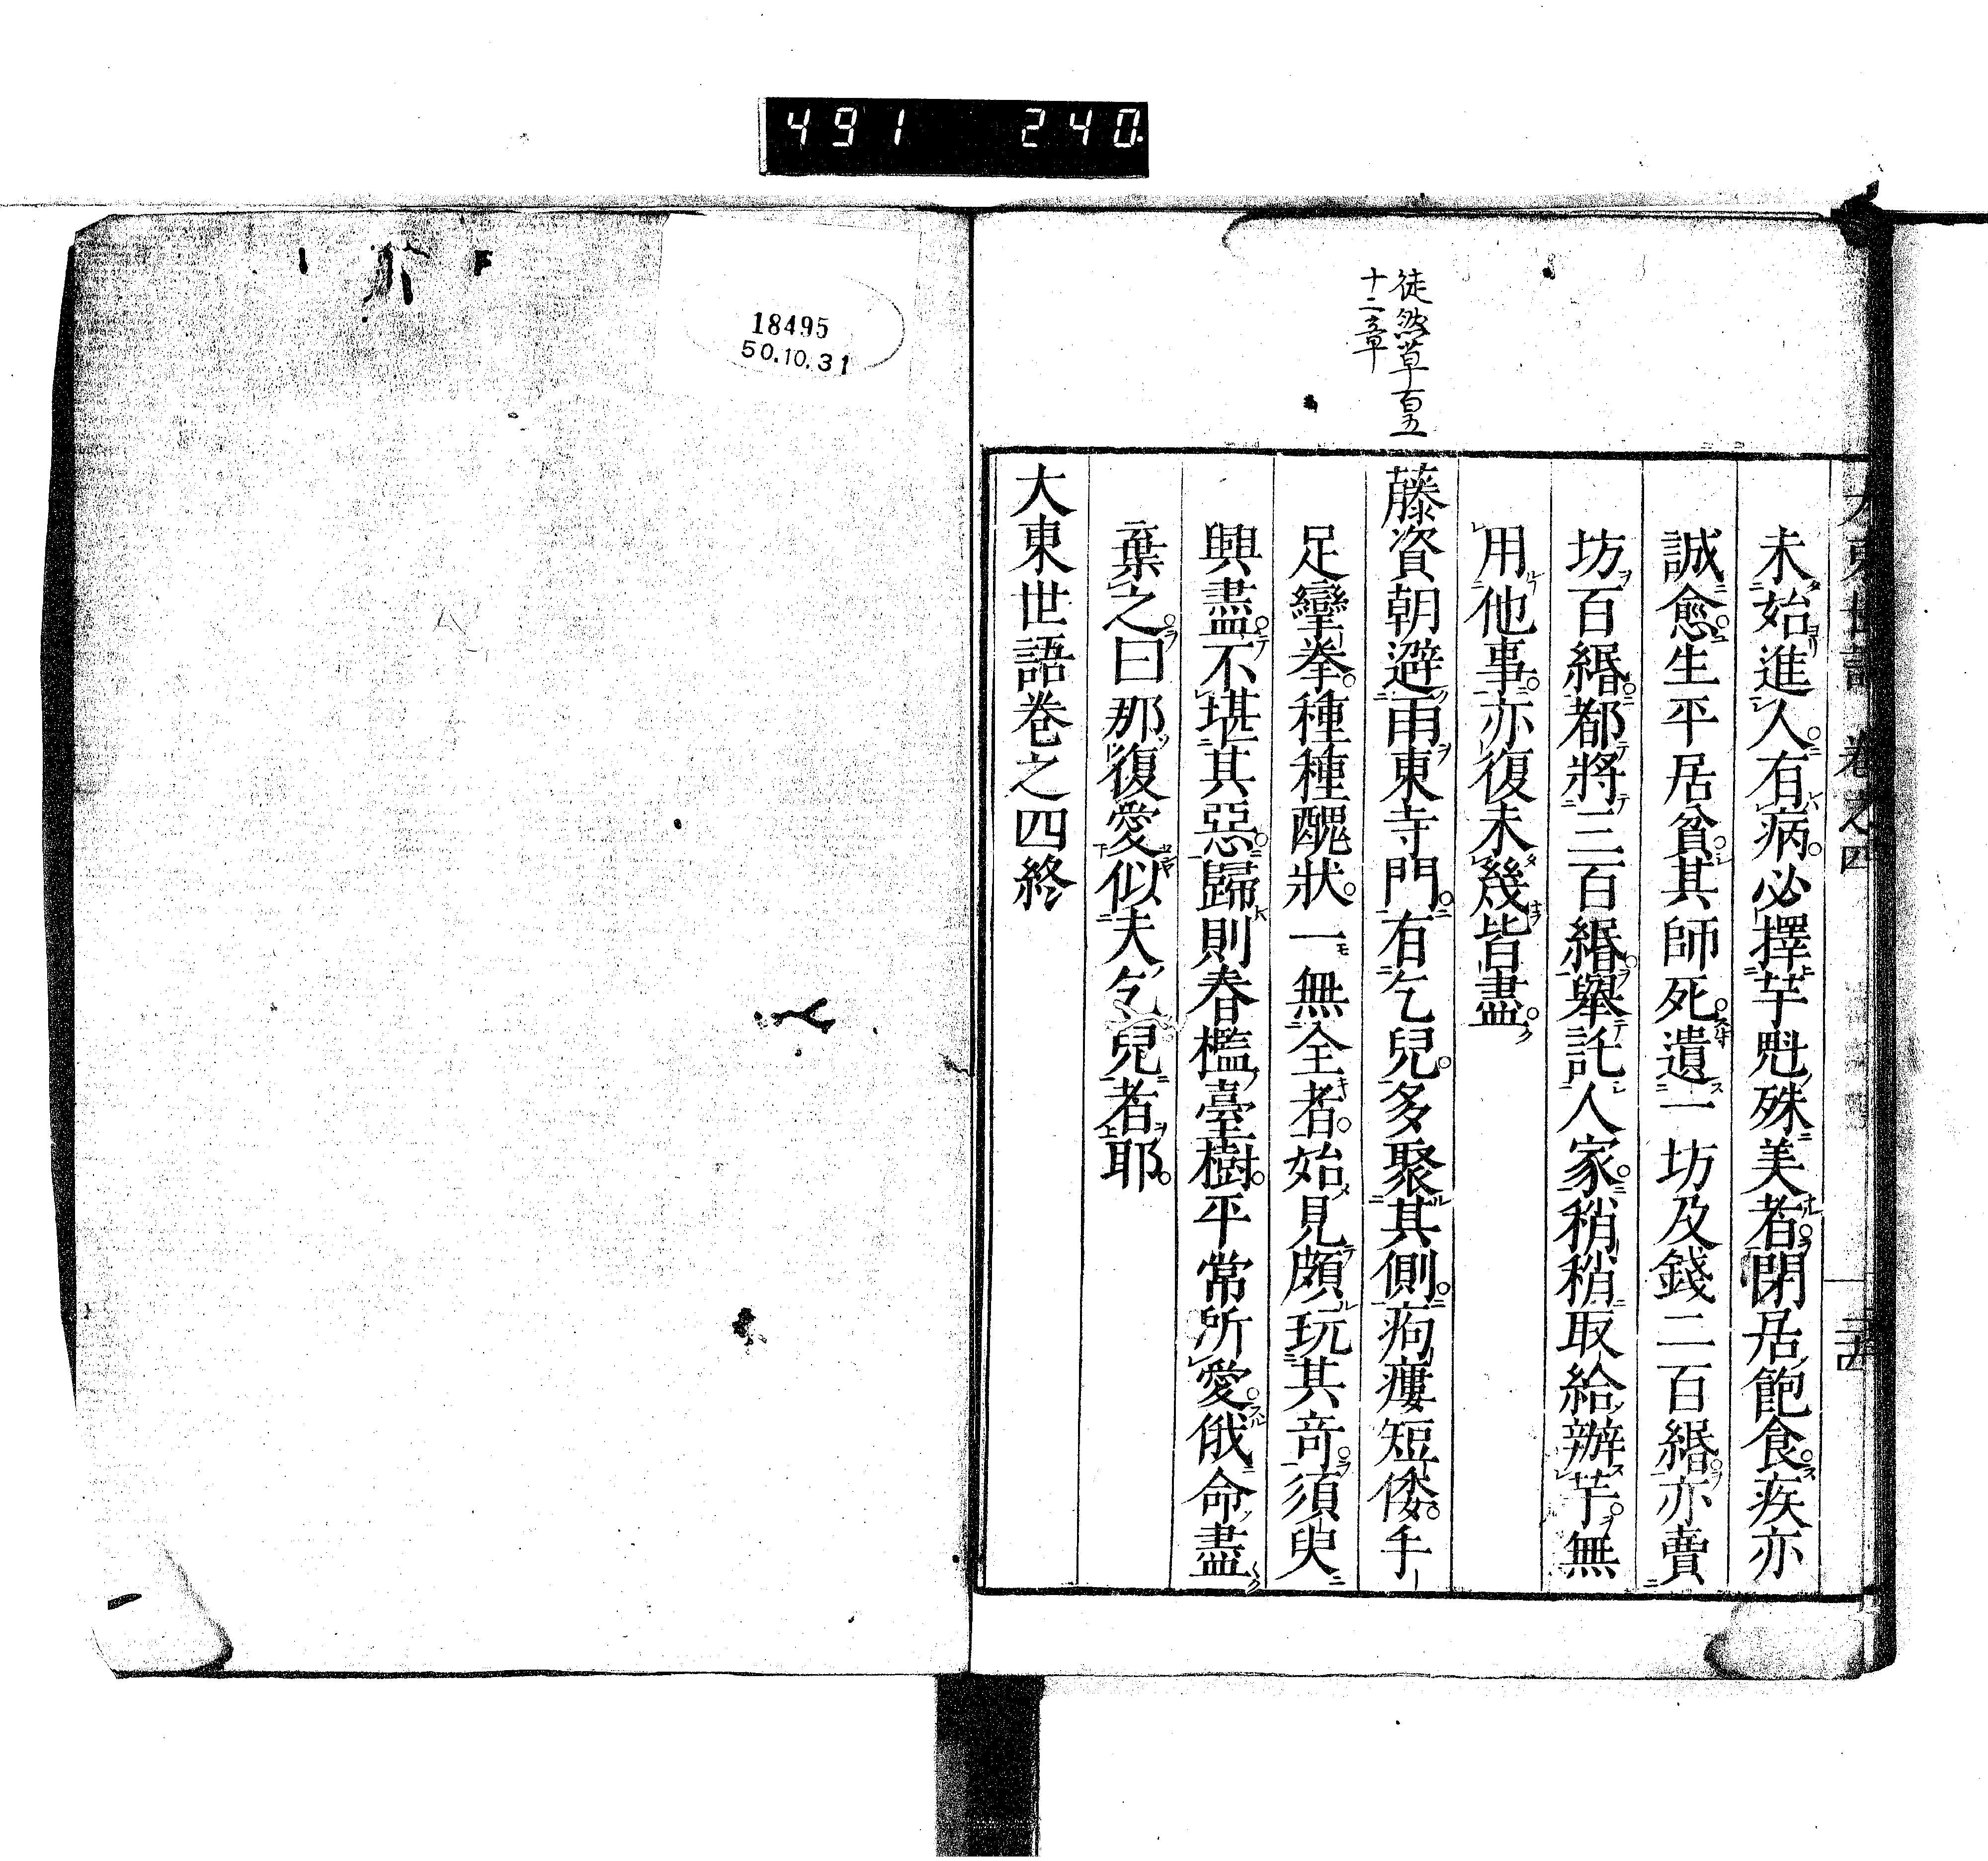 491 240
大東世語 卷之四 三十四
未始進人有病必擇芋魁殊美者閉居飽食疾亦
誠愈生平居貧其師死遺一坊及錢二百緡亦賣
坊百緡都將三百緡舉託人家稍稍取給辦芋無
用他事亦復未幾皆盡
徒然草百五
十二章
藤資朝避雨東寺門有乞兒多聚其側痀瘻短倭手
足攣拳種種醜狀一無全者始見頗玩其奇須臾
興盡不堪其惡歸則春檻臺樹平常所愛俄命盡
棄之曰那復愛似夫乞兒者耶
大東世語卷之四終
18495
50.10.31